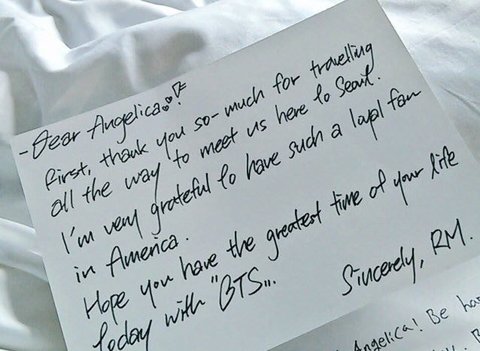 -Dear Angelica!
First, thank you so-much for travelling
all the way to meet us here to Seoul.
I'm very grateful to have such a loyal fan
in America.
Hope you have the greatest time of your life
today with "BTS".
Sincerely, RM.
Angelica! Be ha